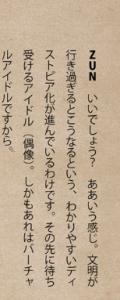 ZUN　いいでしょう？　ああいう感じ。文明が
行き過ぎるとこうなるという、わかりやすいディ
ストピア化が進んでいるわけです。その先に待ち
受けるアイドル（偶像）。しかもあれはバーチャ
ルアイドルですから。